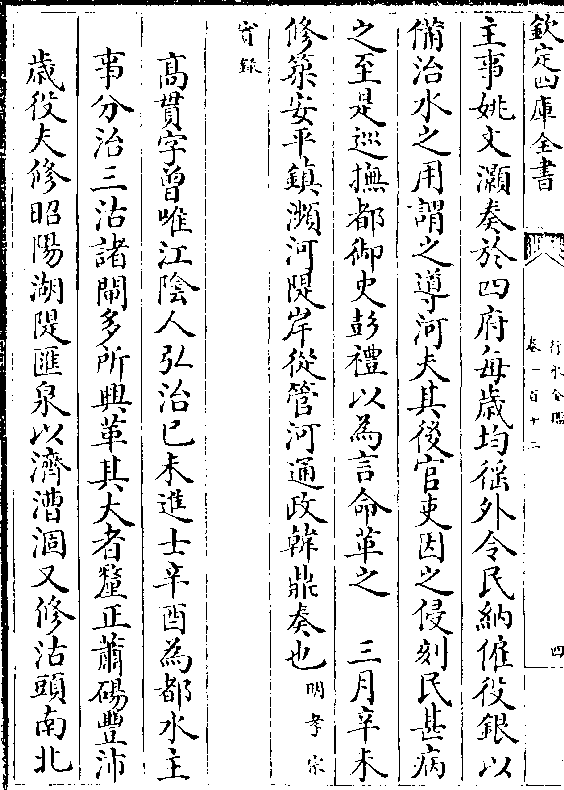 欽定四庫全書
行水金鑑
卷一百十二
四
主事姚文灝奏於四府每歲均徭外令民納僱役銀以
備治水之用謂之導河夫其後官吏因之侵刻民甚病
之至是巡撫都御史彭禮以為言命革之　三月辛未
修築安平鎮瀕河隄岸從管河通政韓鼎奏也明孝宗
實錄
高貫字曾唯江陰人弘治己未進士辛酉為都水主
事分治三沽諸閘多所興革其大者釐正蕭碭豐沛
歲役夫修昭陽湖隄匯泉以濟漕涸又修沽頭南北